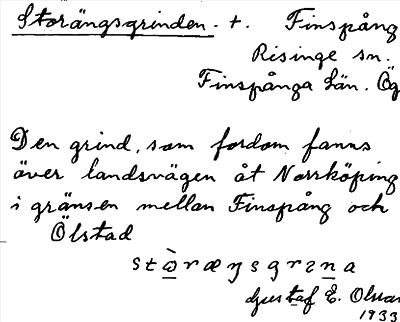 Storängsgrinden. +. Finspång
Risinge sn.
Finspånga län. Ög
Den grind, som fordom fanns
över landsvägen åt Norrköping
i gränsen mellan Finspång och
Ölstad
Gustaf E.
1933